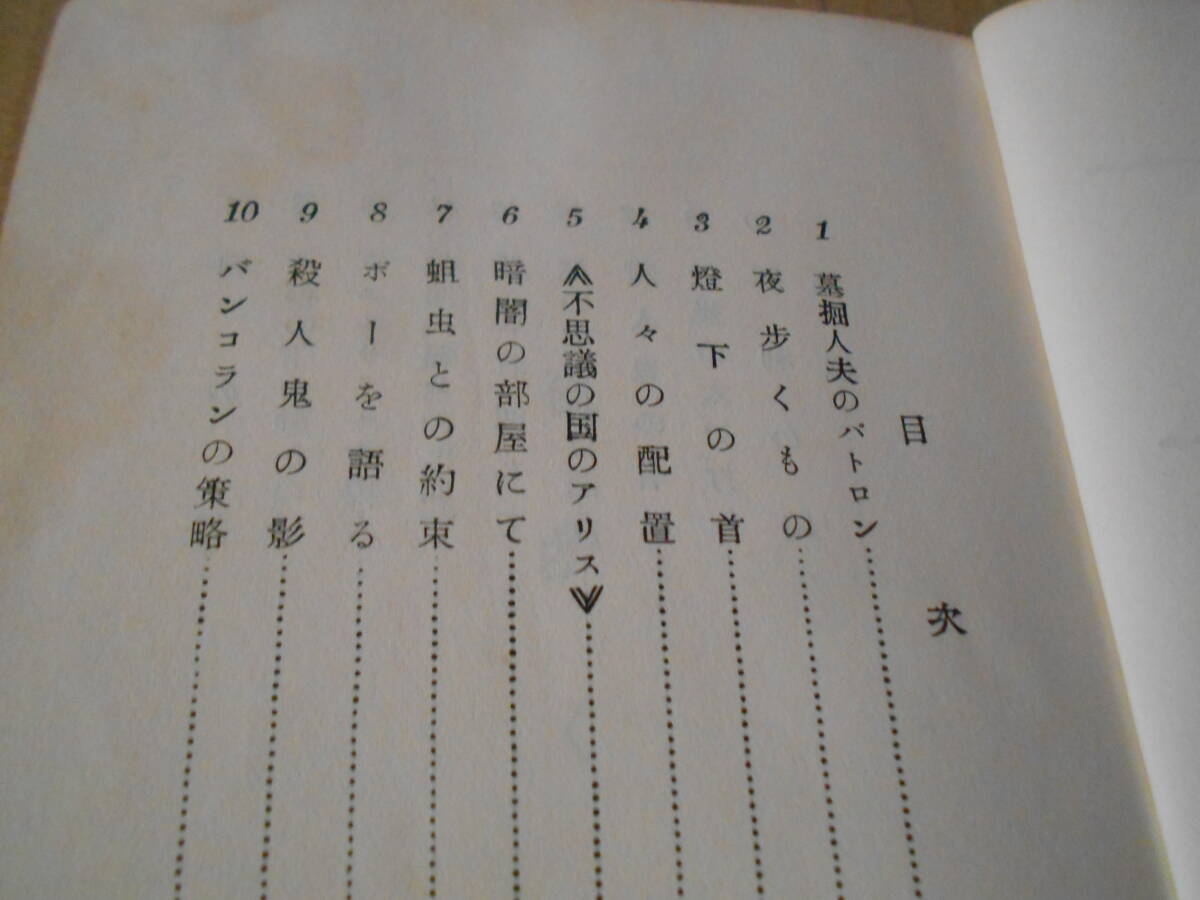 目次
1 墓掘人夫のパトロン
2 夜歩くもの
3 燈下の首
4 人々の配置
5 《不思議の国のアリス》
6 暗闇の部屋にて
7 蛆虫との約束
8 ポーを語る
9 殺人鬼の影
10 バンコランの策略